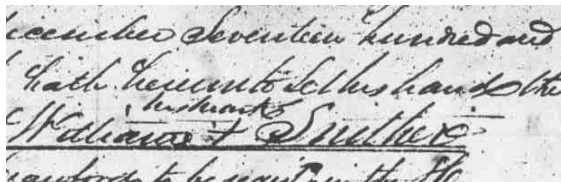 December Seventeen hundred and
hath hereunto set his hand the
his mark
William + Smither
to be